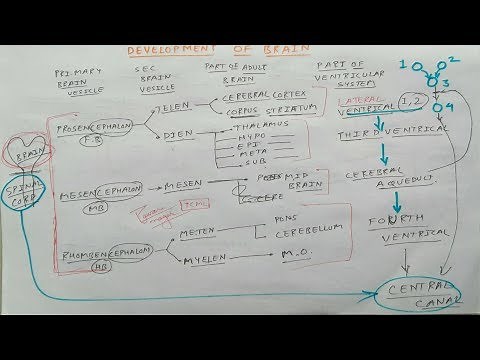 DEVELOPMENT OF BRAIN
PRIMARY BRAIN VESSICLE
SEC BRAIN VESSICLE
PART OF ADULT BRAIN
PART OF VENTRICULAR SYSTEM
1 2
3
4
BRAIN
SPINAL CORP.
PROSENCEPHALON
F.B
TELEN
CEREBRAL CORTEX
CORPUS STRIATUM
LATERAL
VENTRICAL 1, 2
DIEN
THALAMUS
HYPO
EPI
META
SUB
THIRD VENTRICAL
MESENCEPHALON
MB
MESEN
MID
BRAIN
CEREBRAL
AQEDUCT.
RHOMBENCEPHALON
HB
METEN
PONS
CEREBELLUM
MYELEN
M.O.
FOURTH
VENTRICAL
CENTRAL
CANAL